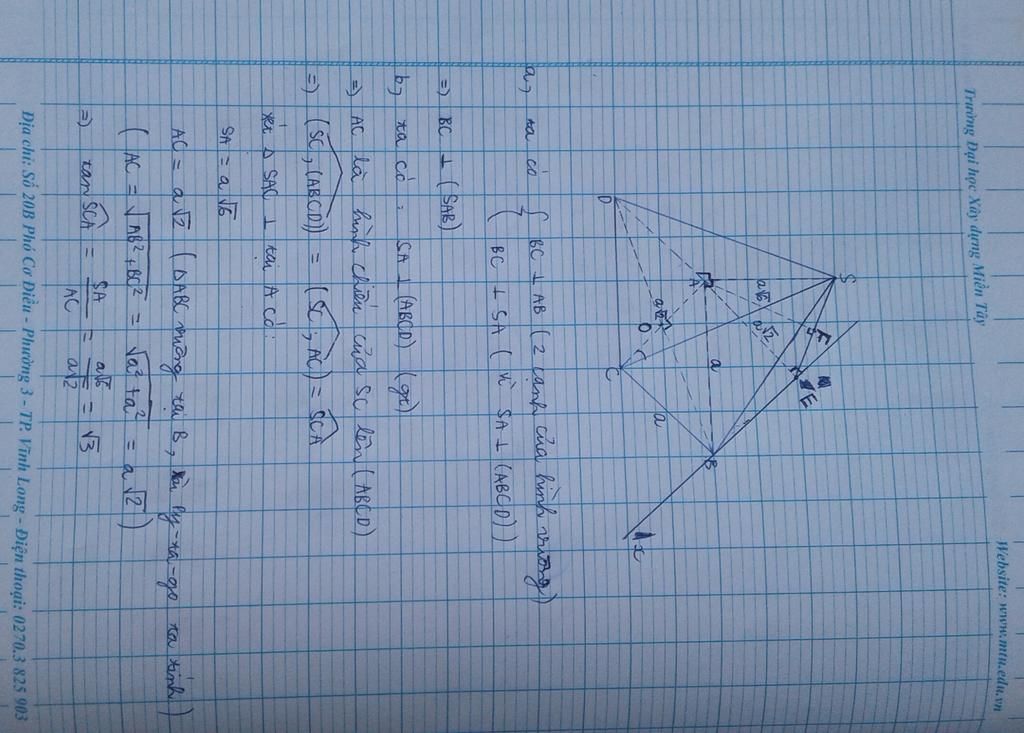 Trường Đại học Xây dựng Miền Tây
Website: www.mtu.edu.vn
S
a√6
a√2
F
E
A
a
B
x
D
O
a√2
C
a
a, ta có { BC ⊥ AB ( 2 cạnh của hình vuông)
BC ⊥ SA ( vì SA ⊥ (ABCD))
=) BC ⊥ (SAB)
b, ta có : SA ⊥ (ABCD) (gt)
=) AC là hình chiếu của SC lên (ABCD)
=) (SC, (ABCD)) = (SC; AC) = SCA
xét Δ SAC ⊥ tại A có:
SA = a√6
AC = a√2 ( ΔABC vuông tại B, py-ta-go ta tính )
( AC = √AB² + BC² = √a² + a² = a√2 )
=) tan SCA = SA/AC = a√6/a√2 = √3
Địa chỉ: Số 20B Phó Cơ Điều - Phường 3 - TP. Vĩnh Long - Điện thoại: 0270.3 825 903